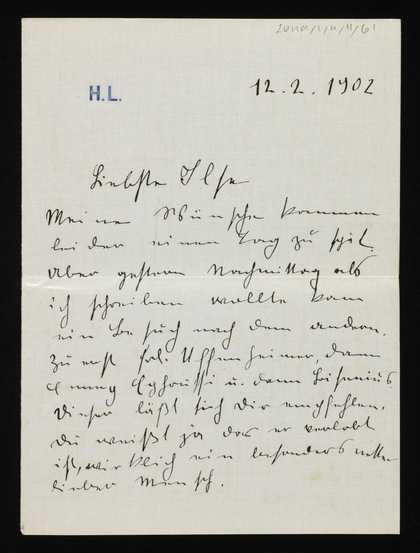 H.L.
12.2.1902
Liebste Ilse
Meine Wünsche kommen
leider einen Tag zu spät.
Aber gestern Nachmittag als
ich schreiben wollte kam
ein Besuch nach dem andern.
Zuerst Frl. Uffenheimer, dann
Emmy Ephrussi u. dann
Dieser läßt sich Dir empfehlen.
Du weißt ja das er verlobt
ist, wirklich ein besonders netter
lieber Mensch.